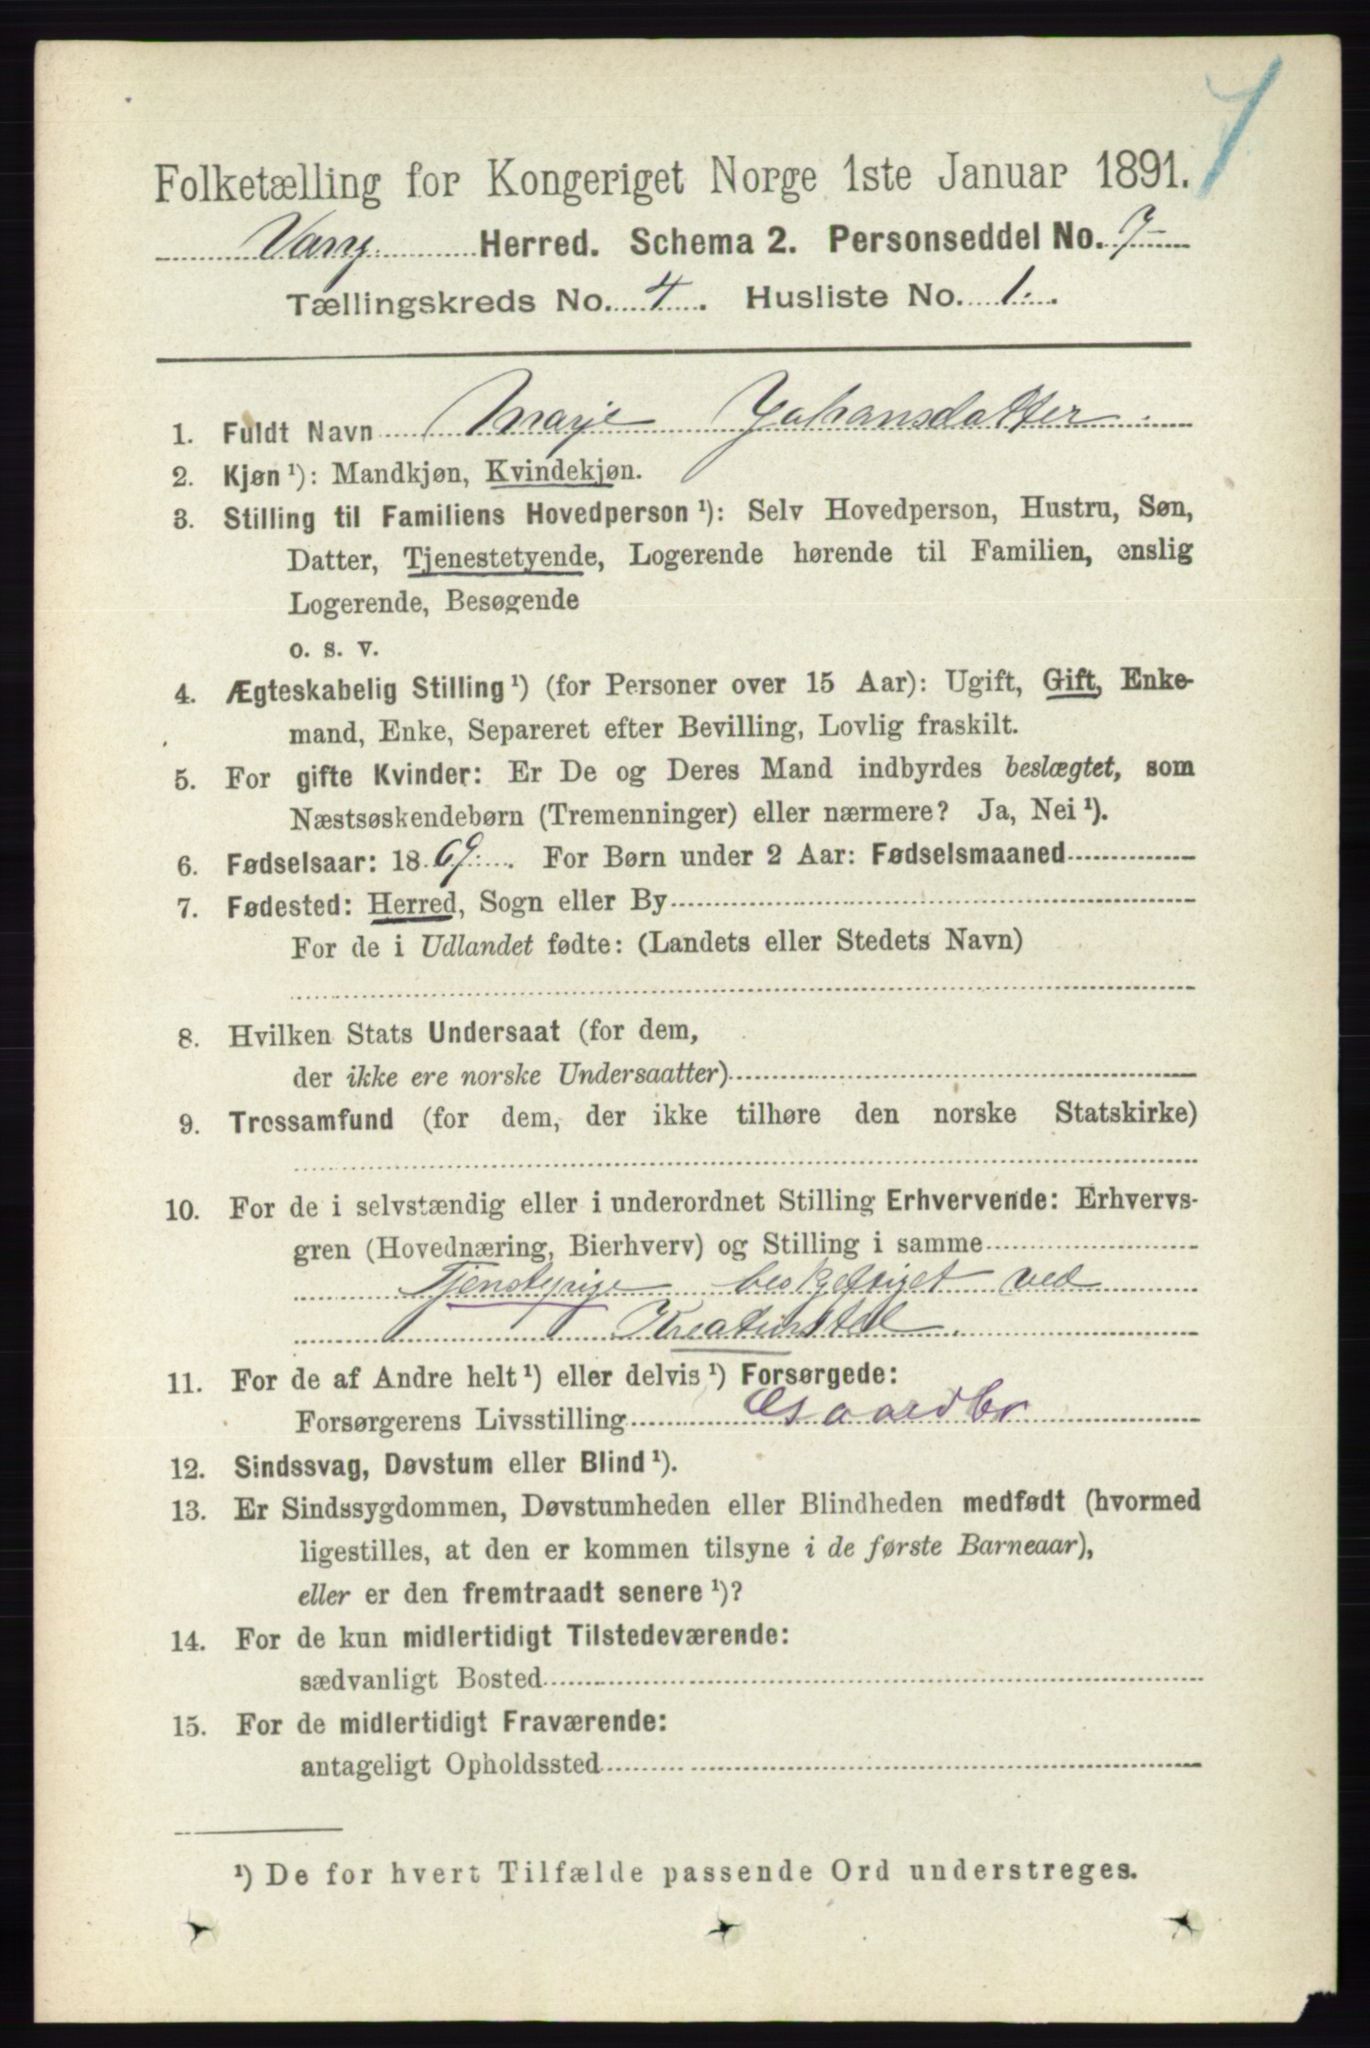 7
Folketælling for Kongeriget Norge 1ste Januar 1891.
Vang Herred. Schema 2. Personseddel No. 7
Tællingskreds No. 4. Husliste No. 1.
1. Fuldt Navn Marje Johansdatter
2. Kjøn ¹): Mandkjøn, Kvindekjøn.
3. Stilling til Familiens Hovedperson ¹): Selv Hovedperson, Hustru, Søn,
Datter, Tjenestetyende, Logerende hørende til Familien, enslig
Logerende, Besøgende
o. s. v.
4. Ægteskabelig Stilling ¹) (for Personer over 15 Aar): Ugift, Gift, Enke-
mand, Enke, Separeret efter Bevilling, Lovlig fraskilt.
5. For gifte Kvinder: Er De og Deres Mand indbyrdes beslægtet, som
Næstsøskendebørn (Tremenninger) eller nærmere? Ja, Nei ¹).
6. Fødselsaar: 1869. For Børn under 2 Aar: Fødselsmaaned
7. Fødested: Herred, Sogn eller By
For de i Udlandet fødte: (Landets eller Stedets Navn)
8. Hvilken Stats Undersaat (for dem,
der ikke ere norske Undersaatter)
9. Trossamfund (for dem, der ikke tilhøre den norske Statskirke)
10. For de i selvstændig eller i underordnet Stilling Erhvervende: Erhvervs-
gren (Hovednæring, Bierhverv) og Stilling i samme
beskjeftiget ved
11. For de af Andre helt ¹) eller delvis ¹) Forsørgede:
Forsørgerens Livsstilling Gaardbr
12. Sindssvag, Døvstum eller Blind ¹).
13. Er Sindssygdommen, Døvstumheden eller Blindheden medfødt (hvormed
ligestilles, at den er kommen tilsyne i de første Barneaar),
eller er den fremtraadt senere ¹)?
14. For de kun midlertidigt Tilstedeværende:
sædvanligt Bosted
15. For de midlertidigt Fraværende:
antageligt Opholdssted
¹) De for hvert Tilfælde passende Ord understreges.